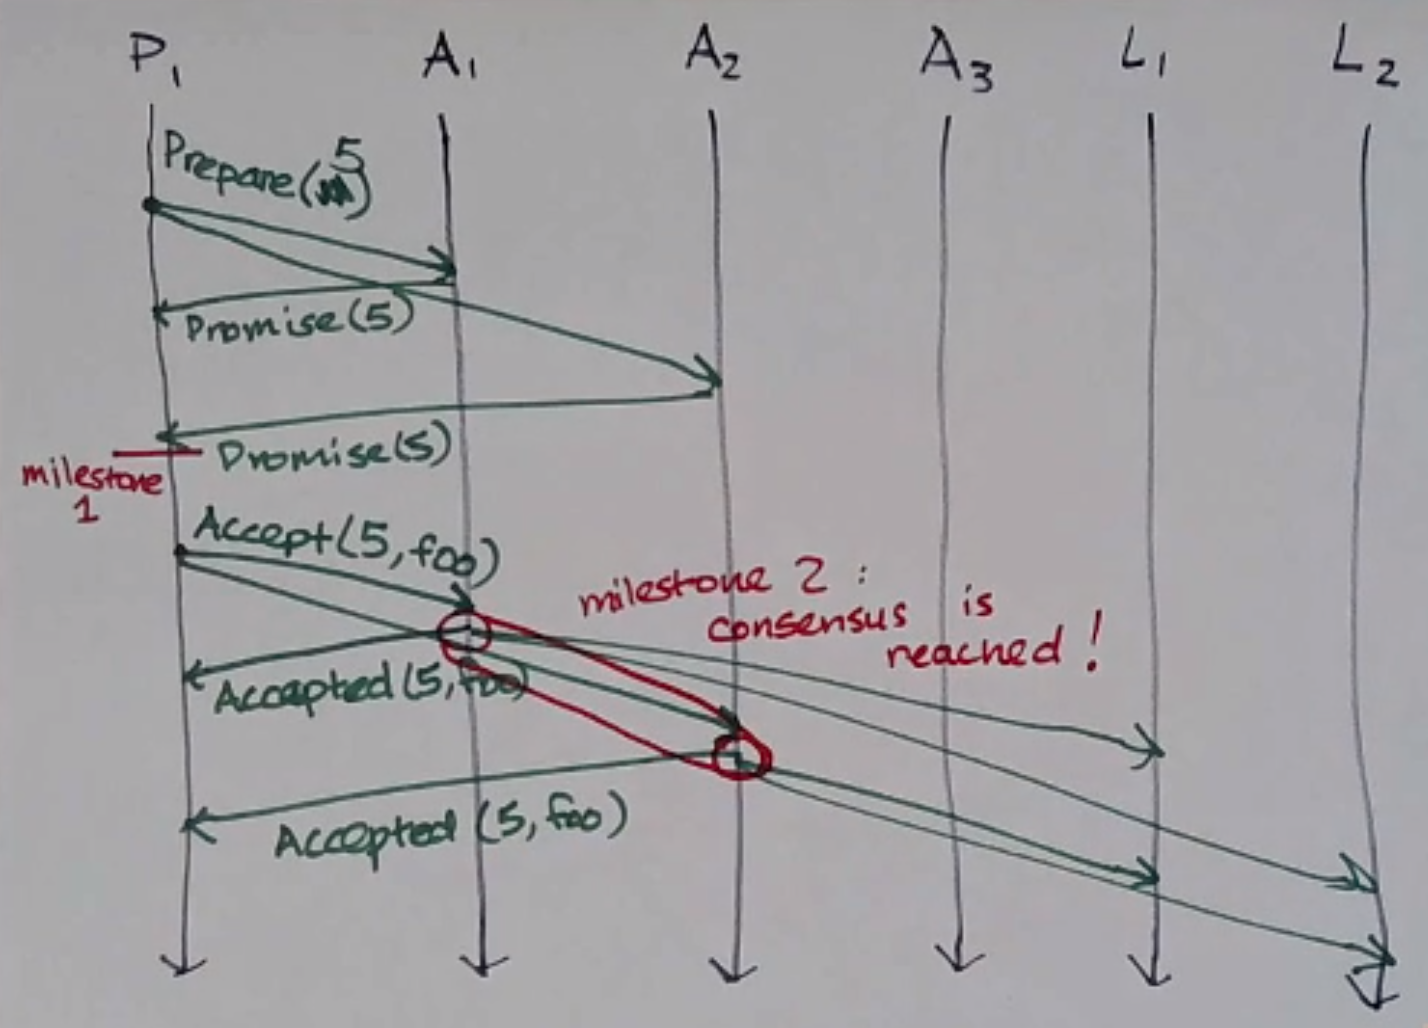 P1 A1 A2 A3 L1 L2
Prepare(5)
Promise(5)
Promise(5)
milestone
1
Accept(5, foo)
milestone 2 :
consensus is
reached!
Accepted (5, foo)
Accepted (5, foo)